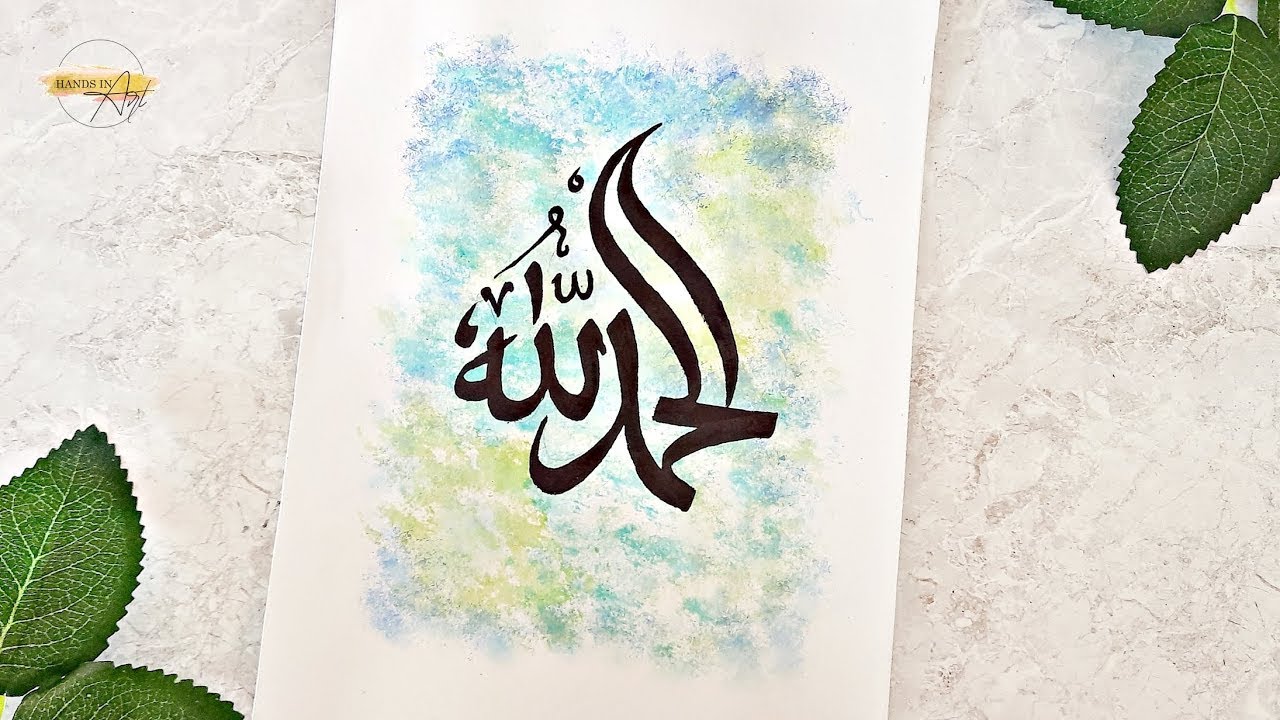 HANDS IN
Art
الحمد لله